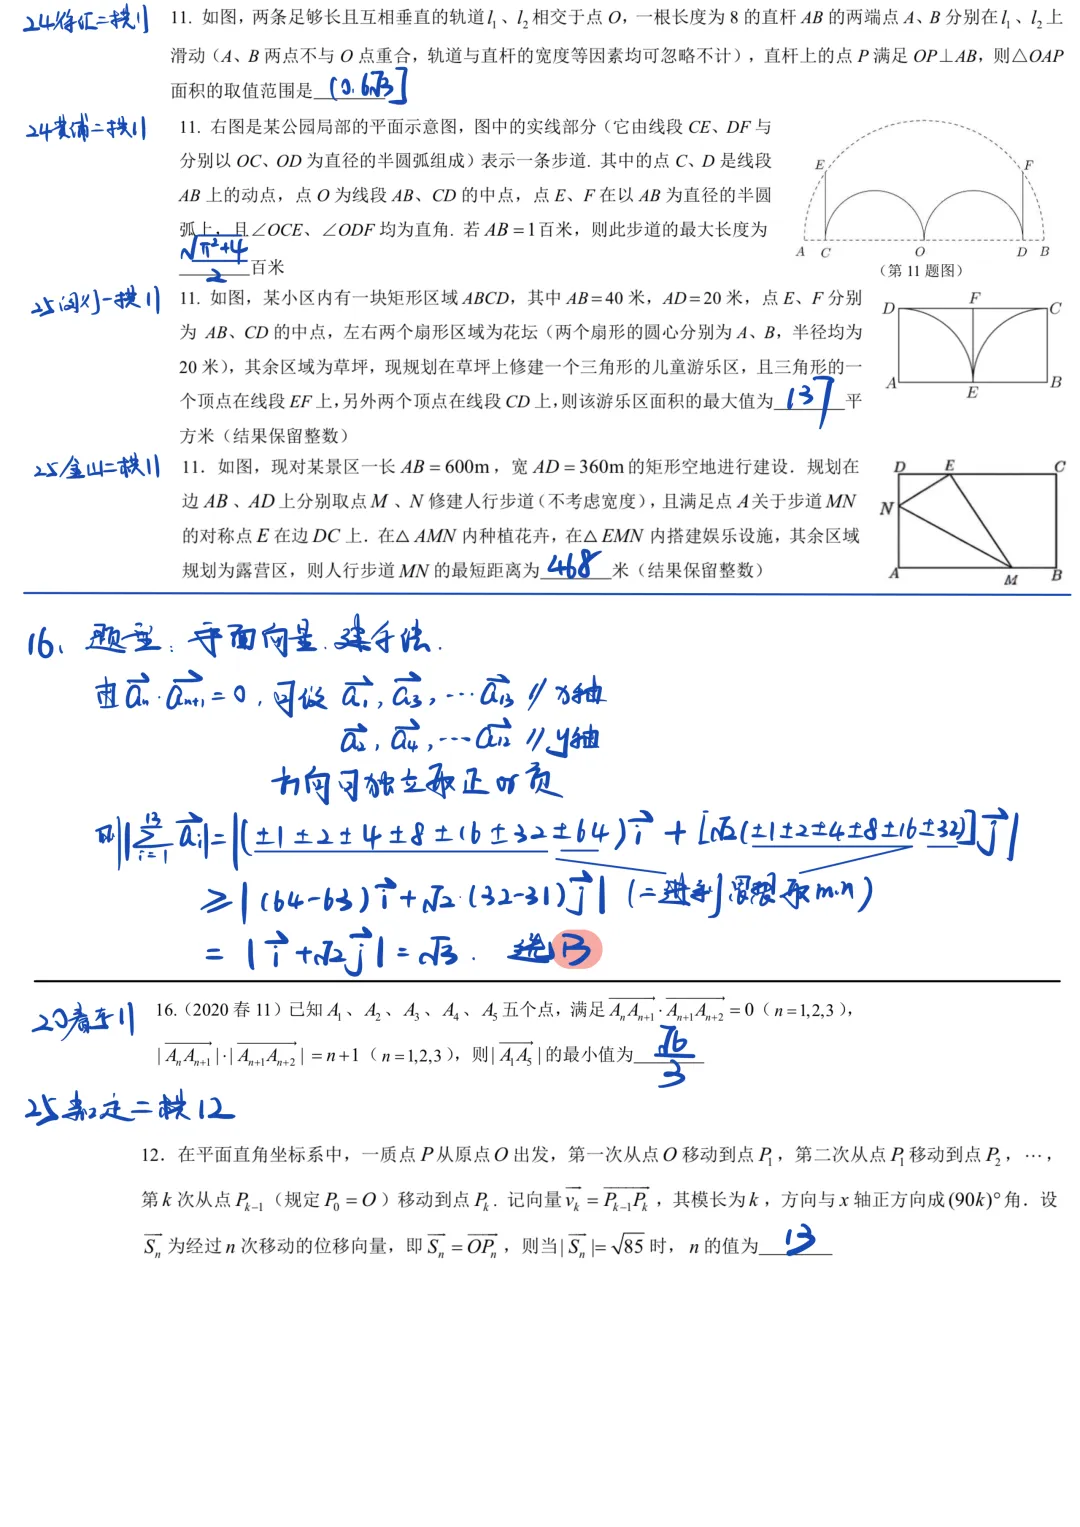 24徐汇二模11
11. 如图，两条足够长且互相垂直的轨道 l₁、l₂ 相交于点 O，一根长度为 8 的直杆 AB 的两端点 A、B 分别在 l₁、l₂ 上
滑动（A、B 两点不与 O 点重合，轨道与直杆的宽度等因素均可忽略不计），直杆上的点 P 满足 OP⊥AB，则△OAP
面积的取值范围是 (0.6√3]
24黄浦二模11
11. 右图是某公园局部的平面示意图，图中的实线部分（它由线段 CE、DF 与
分别以 OC、OD 为直径的半圆弧组成）表示一条步道. 其中的点 C、D 是线段
AB 上的动点，点 O 为线段 AB、CD 的中点，点 E、F 在以 AB 为直径的半圆
弧上，且∠OCE、∠ODF 均为直角. 若 AB = 1百米，则此步道的最大长度为
√(π²+4)/2 百米
E F
A C O D B
（第 11 题图）
25闵行一模11
11. 如图，某小区内有一块矩形区域 ABCD，其中 AB=40 米，AD=20 米，点 E、F 分别
为 AB、CD 的中点，左右两个扇形区域为花坛（两个扇形的圆心分别为 A、B，半径均为
20 米），其余区域为草坪，现规划在草坪上修建一个三角形的儿童游乐区，且三角形的一
个顶点在线段 EF 上，另外两个顶点在线段 CD 上，则该游乐区面积的最大值为 137 平
方米（结果保留整数）
D F C
A E B
25金山二模11
11. 如图，现对某景区一长 AB = 600m，宽 AD = 360m 的矩形空地进行建设．规划在
边 AB 、AD 上分别取点 M 、N 修建人行步道（不考虑宽度），且满足点 A 关于步道 MN
的对称点 E 在边 DC 上．在△ AMN 内种植花卉，在△ EMN 内搭建娱乐设施，其余区域
规划为露营区，则人行步道 MN 的最短距离为 468 米（结果保留整数）
D E C
N
A M B
16、题型：平面向量.建系法.
由 a⃗ₙ·a⃗ₙ₊₁=0，可设 a⃗₁, a⃗₃, ⋯a⃗₁₃ // x轴
a⃗₂, a⃗₄, ⋯a⃗₁₂ // y轴
方向可独立取正or负
则|∑_{i=1}^{13} a⃗ᵢ|=|(±1±2±4±8±16±32±64)i⃗ + [√2(±1±2±4±8±16±32)]j⃗|
≥|(64-63)i⃗+√2·(32-31)j⃗| (二进制思想取min)
= |i⃗+√2j⃗|=√3. 选B
20春季11
16.（2020 春 11）已知 A₁、A₂、A₃、A₄、A₅ 五个点，满足 AₙAₙ₊₁·Aₙ₊₁Aₙ₊₂ = 0（ n=1,2,3），
|AₙAₙ₊₁|·|Aₙ₊₁Aₙ₊₂| = n+1（ n=1,2,3），则|A₁A₅|的最小值为 √6/3
25嘉定二模12
12．在平面直角坐标系中，一质点 P 从原点 O 出发，第一次从点 O 移动到点 P₁，第二次从点 P₁ 移动到点 P₂，⋯，
第 k 次从点 Pₖ₋₁（规定 P₀ = O）移动到点 Pₖ．记向量 vₖ = Pₖ₋₁Pₖ，其模长为 k，方向与 x 轴正方向成 (90k)° 角．设
Sₙ 为经过 n 次移动的位移向量，即 Sₙ = OPₙ，则当| Sₙ |= √85 时，n 的值为 13